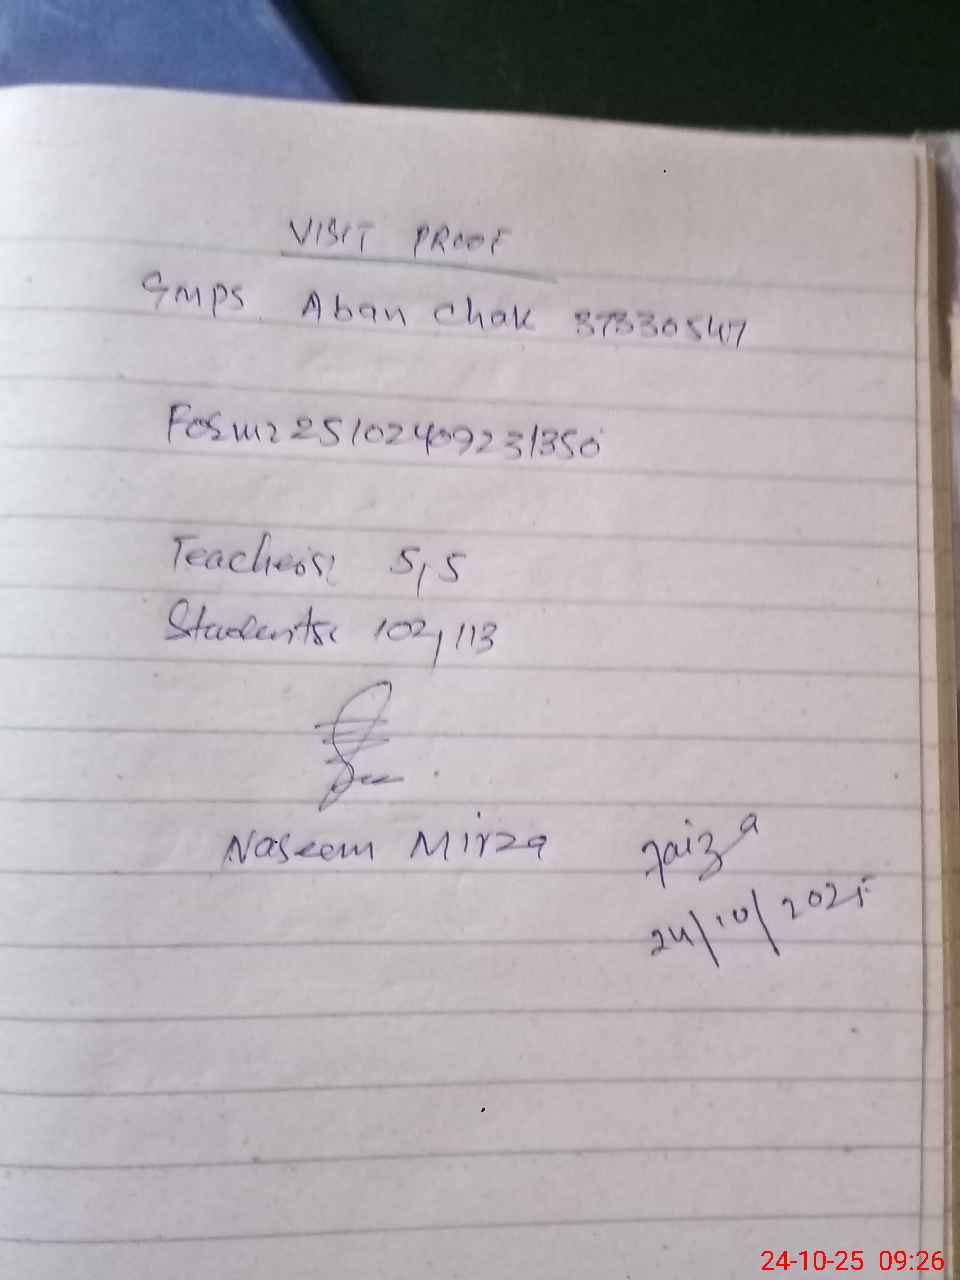 VISIT PROOF
GMPS. Aban Chak 37330547
Form: 25102409231350
Teachers: 5,5
Students: 102,113
Naseem Mirza
Faiza
24/10/2025
24-10-25 09:26